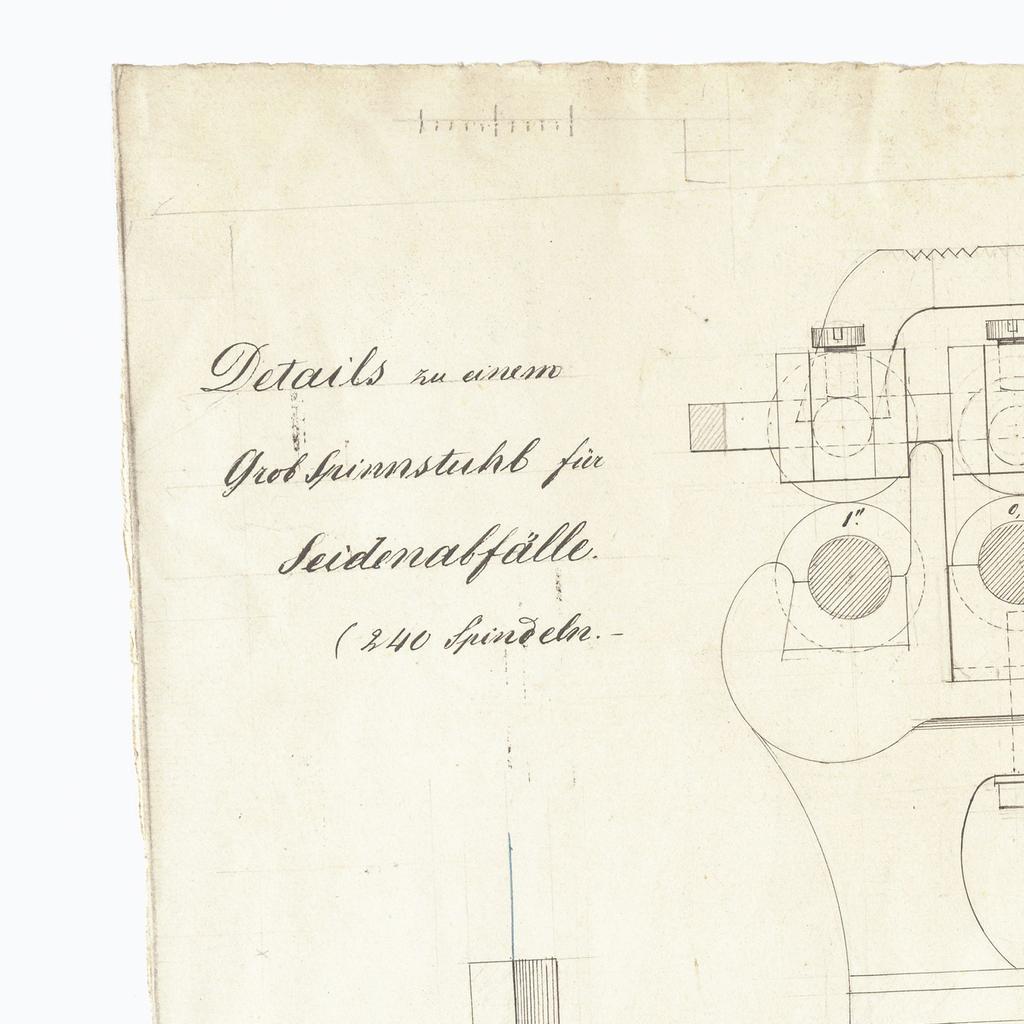 Details zu einem
Grob Spinnstuhl für
Seidenabfälle.
(240 Spindeln. –
1".
0,